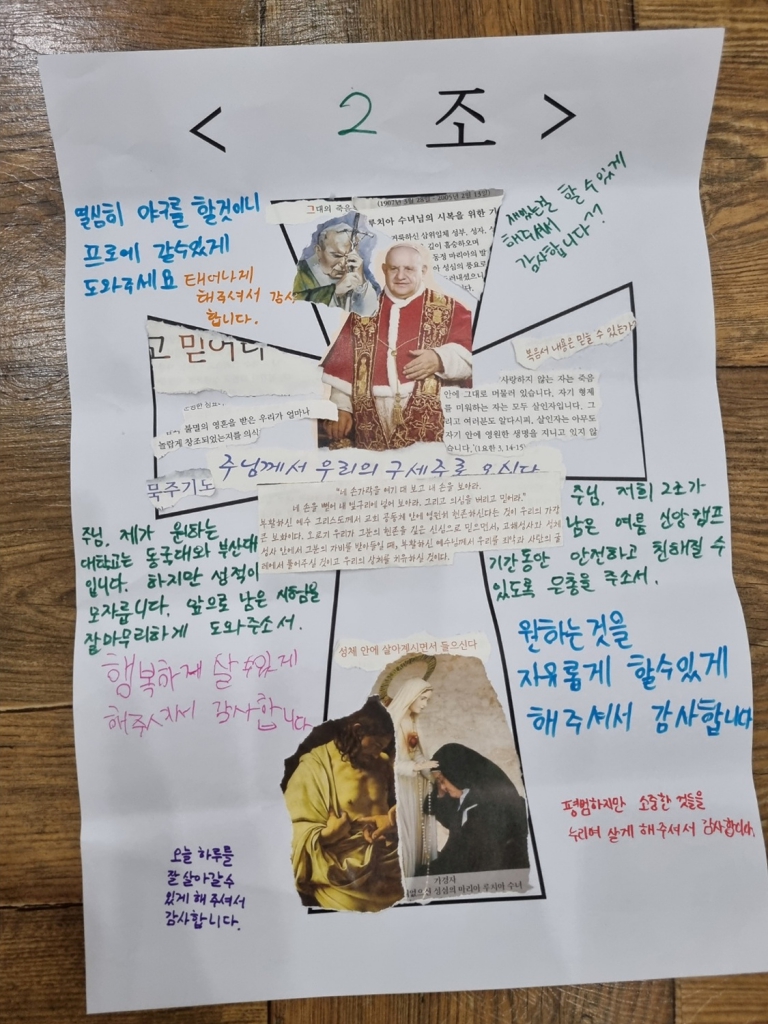 < 2 조 >
열심히 야구를 할것이니
프로에 갈수있게
도와주세요
태어나게
해주셔서 감사
합니다.
재밌는걸 할 수 있게
해주셔서
감사합니다??
그대의 죽은
(1907년 3월 28일 - 2005년 2월 13일)
루치아 수녀님의 시복을 위한 기
거룩하신 삼위일체 성부, 성자,
깊이 흠숭하오며
고 믿어
불멸의 영혼을 받은 우리가 얼마나
놀랍게 창조되었는지를 의식
묵주기도
복음서 내용은 믿을 수 있는가?
사랑하지 않는 자는 죽음
안에 그대로 머물러 있습니다. 자기 형제
를 미워하는 자는 모두 살인자입니다. 그
리고 여러분도 알다시피, 살인자는 아무도
자기 안에 영원한 생명을 지니고 있지 않
습니다.’(1요한 3, 14-15)
주님께서 우리의 구세주로 오시다
“네 손가락을 여기 대 보고 내 손을 보아라.
네 손을 뻗어 내 옆구리에 넣어 보아라. 그리고 의심을 버리고 믿어라.”
부활하신 예수 그리스도께서 교회 공동체 안에 영원히 현존하신다는 것이 우리의 가장
큰 보화이다. 오로지 우리가 그분의 현존을 깊은 신심으로 믿으면서, 고해성사와 성체
성사 안에서 그분의 자비를 받아들일 때, 부활하신 예수님께서 우리를 죄악과 사탄의 굴
레에서 풀어주실 것이고 우리의 상처를 치유하실 것이다.
주님, 제가 원하는
대학교는 동국대와 부산대
입니다. 하지만 성적이
모자릅니다. 앞으로 남은 시험을
잘마무리하게 도와주소서.
주님, 저희 2조가
남은 여름 신앙캠프
기간동안 안전하고 친해질 수
있도록 은총을 주소서.
행복하게 살 수있게
해주셔서 감사합니다
원하는것을
자유롭게 할수있게
해주셔서 감사합니다
성체 안에 살아계시면서 들으신다
가경자
성심의 마리아 루치아 수녀
평범하지만 소중한 것들을
누리며 살게 해주셔서 감사합니다.
오늘 하루를
잘 살아갈수
있게 해주셔서
감사합니다.